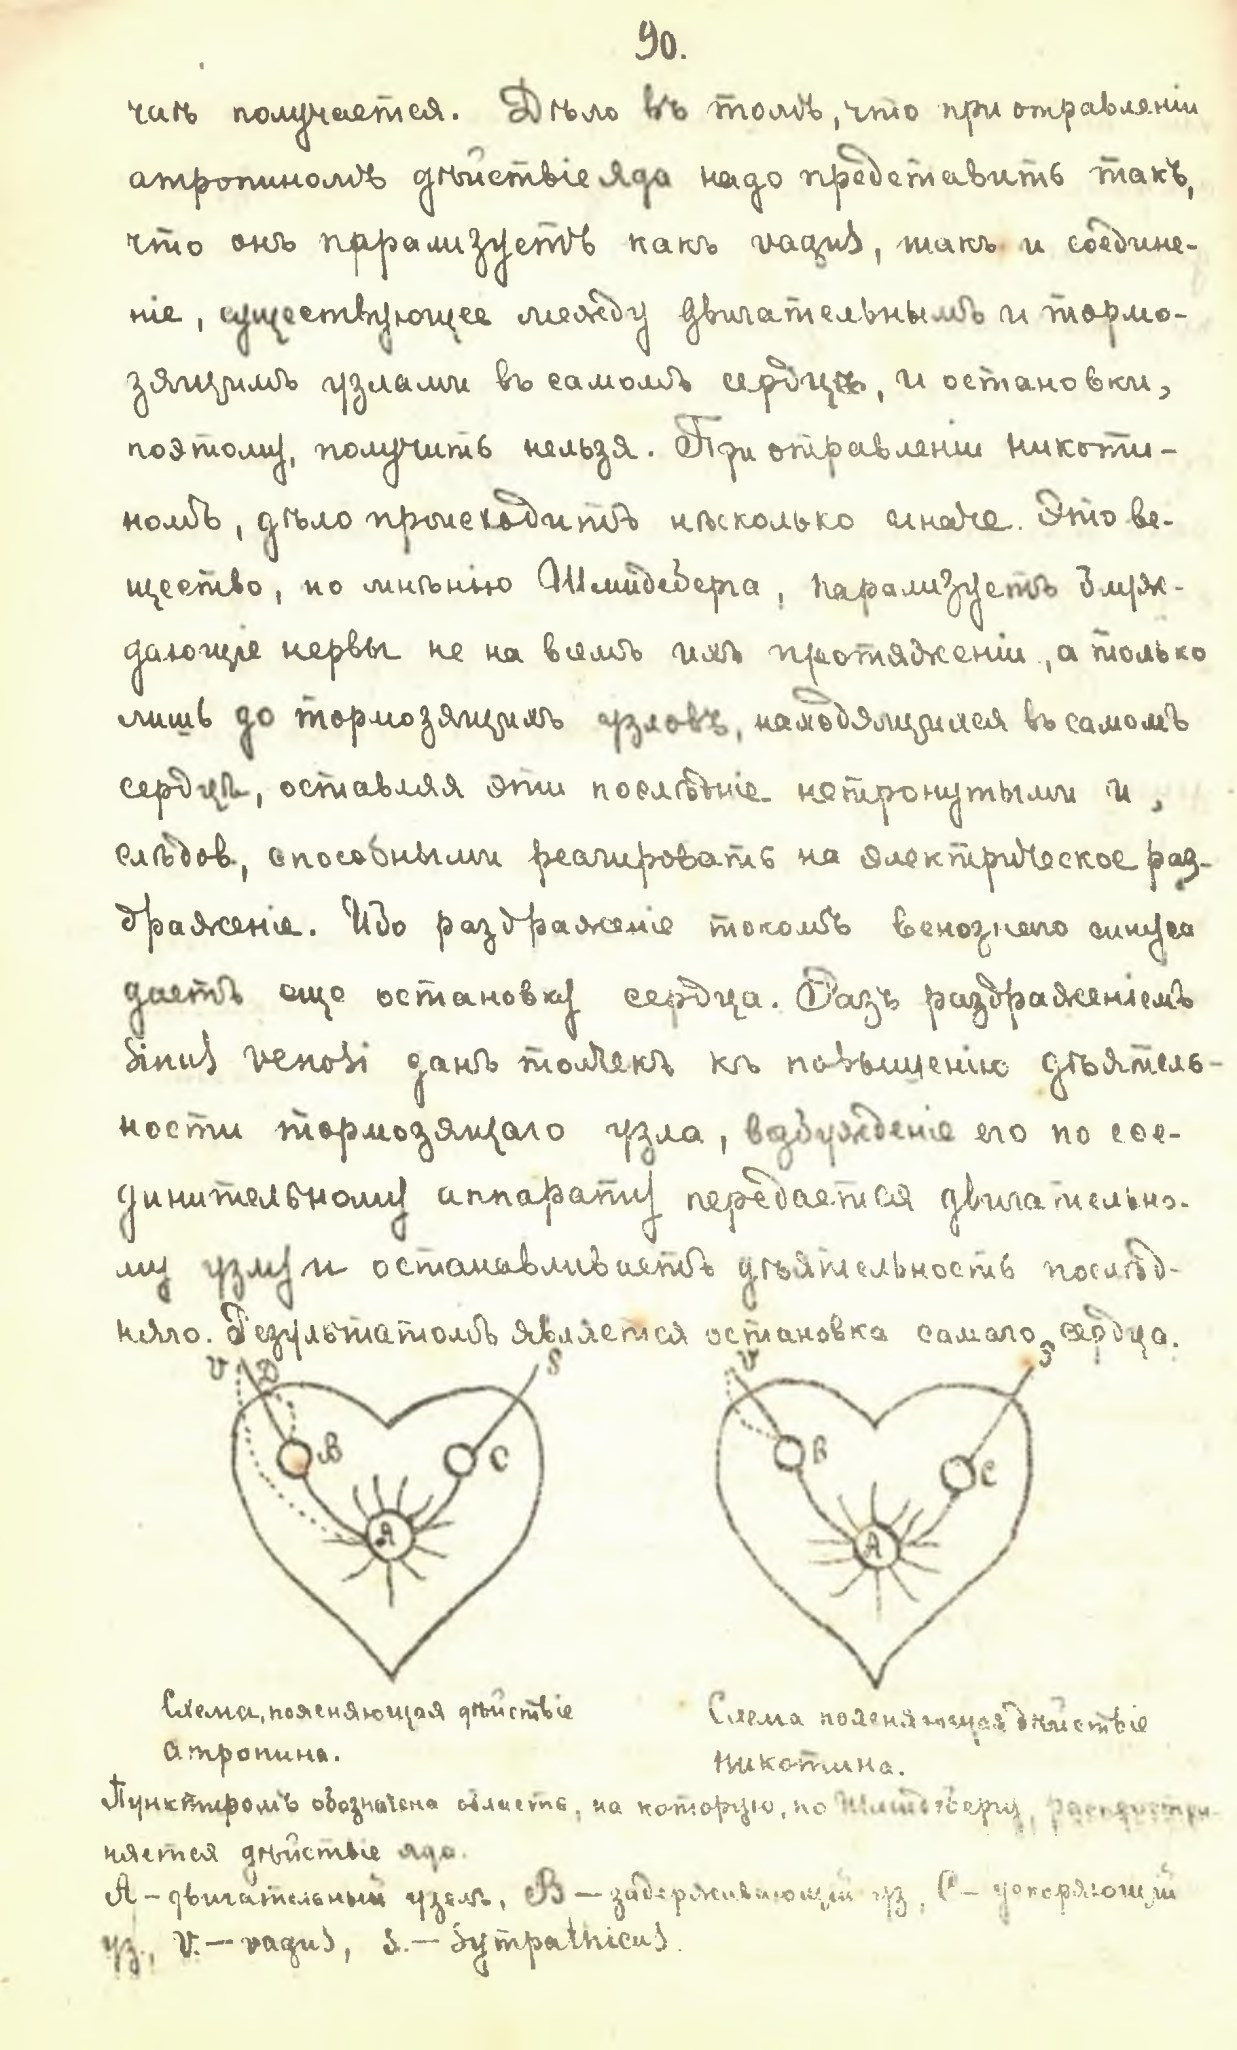 90.
чаѣ получается. Дѣло въ томъ, что при отравленіи
атропиномъ дѣйствіе яда надо представить такъ,
что онъ парализуетъ какъ vagus, такъ и соедине-
ніе, существующее между двигательнымъ и тормо-
зящимъ узлами въ самомъ сердцѣ, и остановки,
поэтому, получить нельзя. При отравленіи никоти-
номъ, дѣло происходитъ нѣсколько иначе. Это ве-
щество, по мнѣнію Шмидеберга, парализуетъ блуж-
дающіе нервы не на всемъ ихъ протяженіи, а только
лишь до тормозящихъ узловъ, находящихся въ самомъ
сердцѣ, оставляя эти послѣдніе нетронутыми и,
слѣдов., способными реагировать на электрическое раз-
драженіе. Ибо раздраженіе токомъ венознаго синуса
даетъ еще остановку сердца. Разъ раздраженіемъ
Sinus venosi данъ толчекъ къ повышенію дѣятель-
ности тормозящаго узла, возбужденіе его по сое-
динительному аппарату передается двигательно-
му узлу и останавливаетъ дѣятельность послѣд-
няго. Результатомъ является остановка самаго сердца.
V D S V S
B C B C
A A
Схема, поясняющая дѣйствіе
атропина.
Схема поясняющая дѣйствіе
никотина.
Пунктиромъ обозначена область, на которую, по Шмидебергу, распростра-
няется дѣйствіе яда.
A – двигательный узелъ, B – задерживающій уз, C – ускоряющій
уз., V. – vagus, S. – Sympathicus.